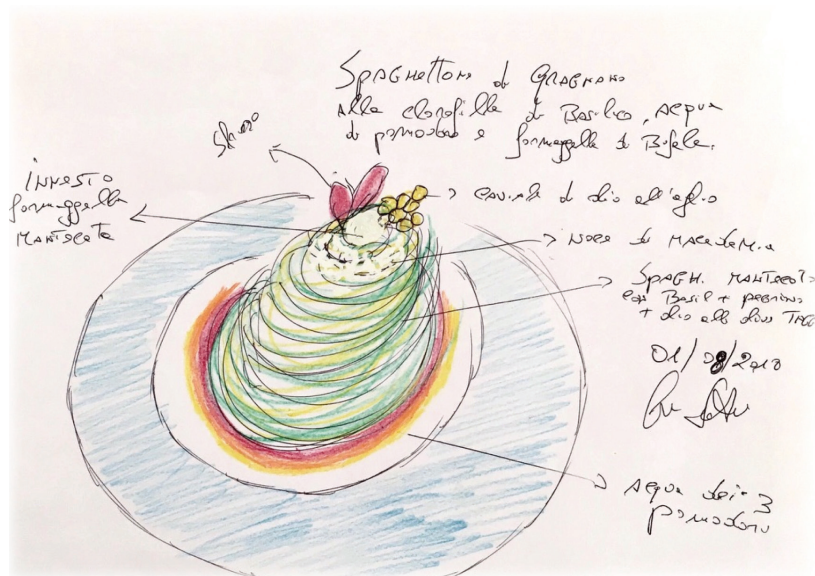 Spaghettone di Gragnano
alla clorofilla di Basilico, acqua
di pomodoro e formaggella di Bufala.
Innesto
formaggella
mantecata
caviale di olio all'aglio
noce di Macadamia
Spagh. mantecato
con Basil + pecorino
+ olio alle olive
Acqua dei 3
pomodori